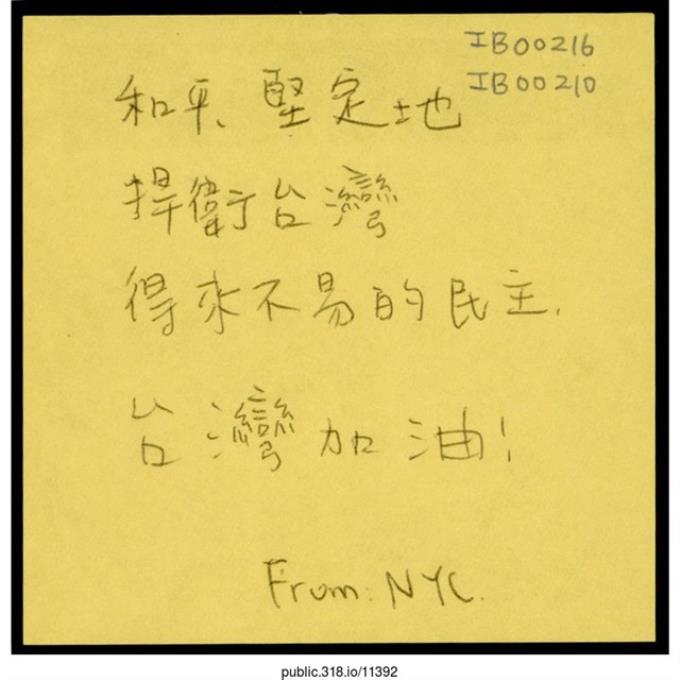 IB00216
IB00210
和平、堅定地
捍衛台灣
得來不易的民主.
台灣加油!
From: NYC.
public.318.io/11392